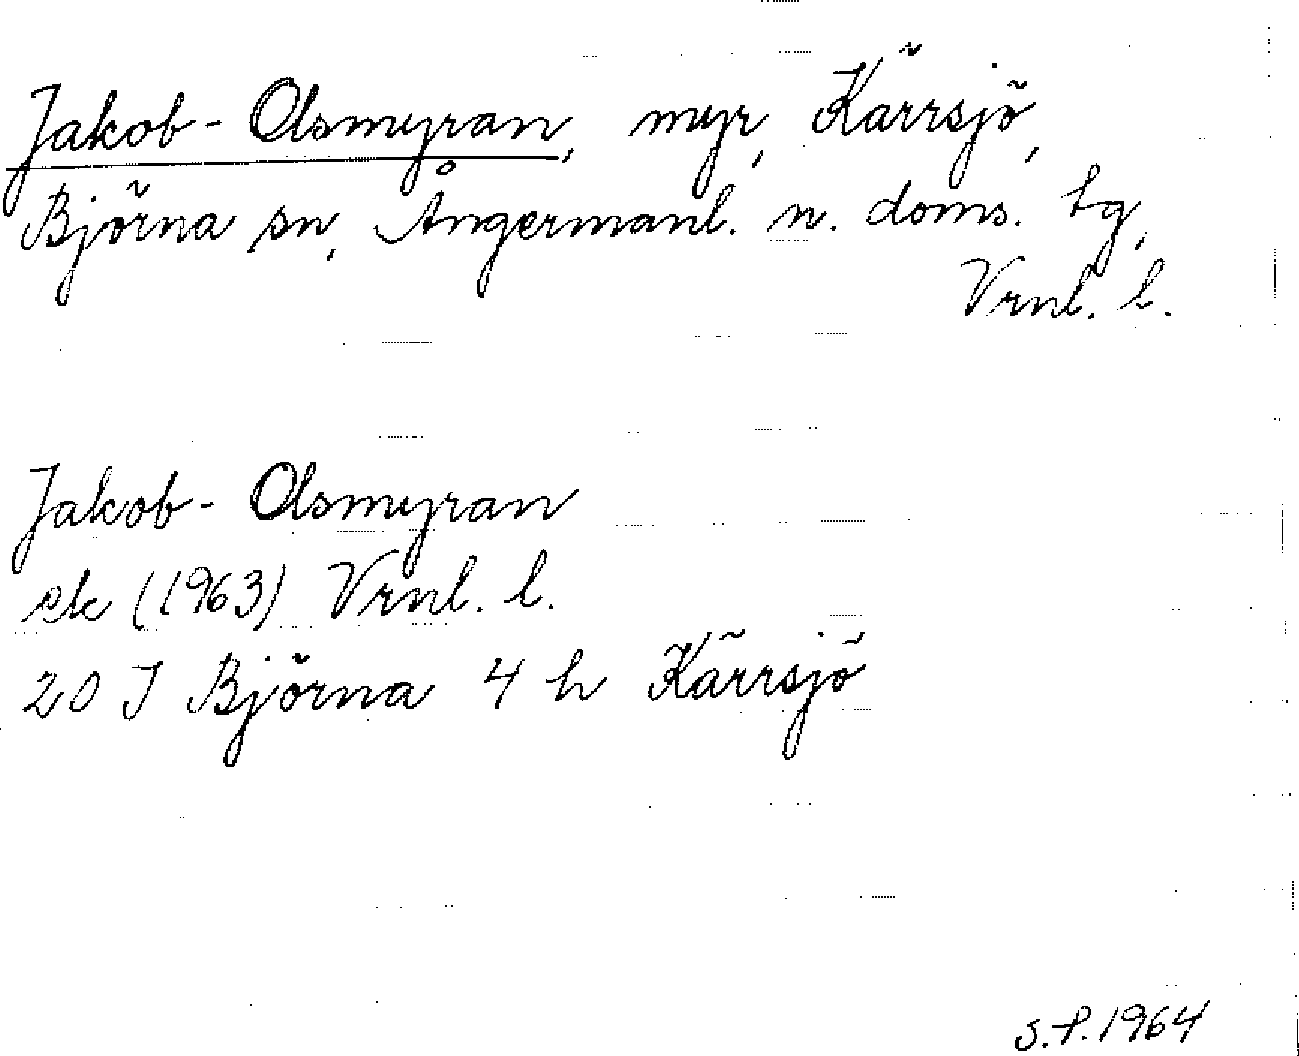 Jakob-Olsmyran, myr, Kärrsjö,
Björna sn, Ångermanl. n. doms. tg,
Vrnl. l.
Jakob-Olsmyran
ek (1963) Vrnl. l.
20 J Björna 4 h Kärrsjö
S.P. 1964